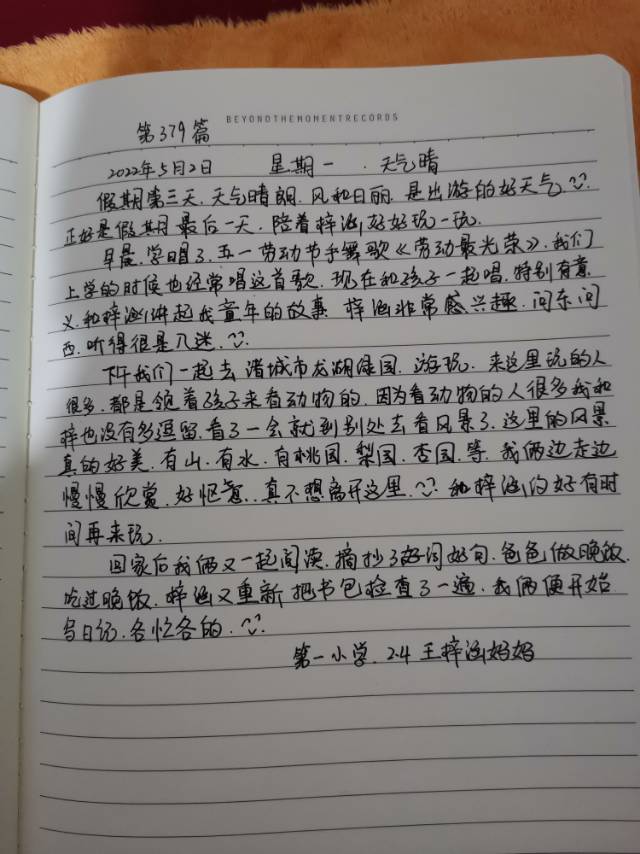 BEYONDTHEMOMENTRECORDS
第379篇
2022年5月2日 星期一 . 天气晴
假期第三天.天气晴朗.风和日丽.是出游的好天气
正好是假期最后一天.陪着梓涵好好玩一玩.
早晨.学唱了.五一劳动节手舞歌《劳动最光荣》.我们
上学的时候也经常唱这首歌.现在和孩子一起唱.特别有意
义.和梓涵讲起我童年的故事 梓涵非常感兴趣.问东问
西.听得很是入迷.
下午我们一起去诸城市龙湖绿园.游玩.来这里玩的人
很多.都是领着孩子来看动物的.因为看动物的人很多我和
梓也没有多逗留.看了一会就到别处去看风景了.这里的风景
真的好美.有山.有水.有桃园.梨园.杏园.等.我俩边走边
慢慢欣赏.好惬意..真不想离开这里. 和梓涵约好有时
间再来玩.
回家后我俩又一起阅读.摘抄了好词好句.爸爸做晚饭.
吃过晚饭.梓涵又重新把书包检查了一遍.我俩便开始
写日记.各忙各的.
第一小学.2.4 王梓涵妈妈